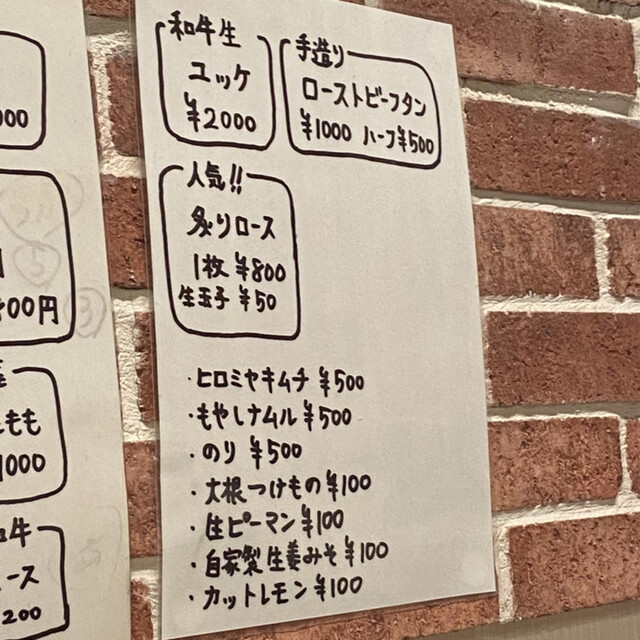 000
00円
もも
1000
和牛
ース
200
和牛生
ユッケ
¥2000
手造り
ローストビーフタン
¥1000 ハーフ¥500
人気!!
炙りロース
1枚 ¥800
生玉子 ¥50
・ヒロミヤキムチ ¥500
・もやしナムル ¥500
・のり ¥500
・大根つけもの ¥100
・生ピーマン ¥100
・自家製生姜みそ ¥100
・カットレモン ¥100